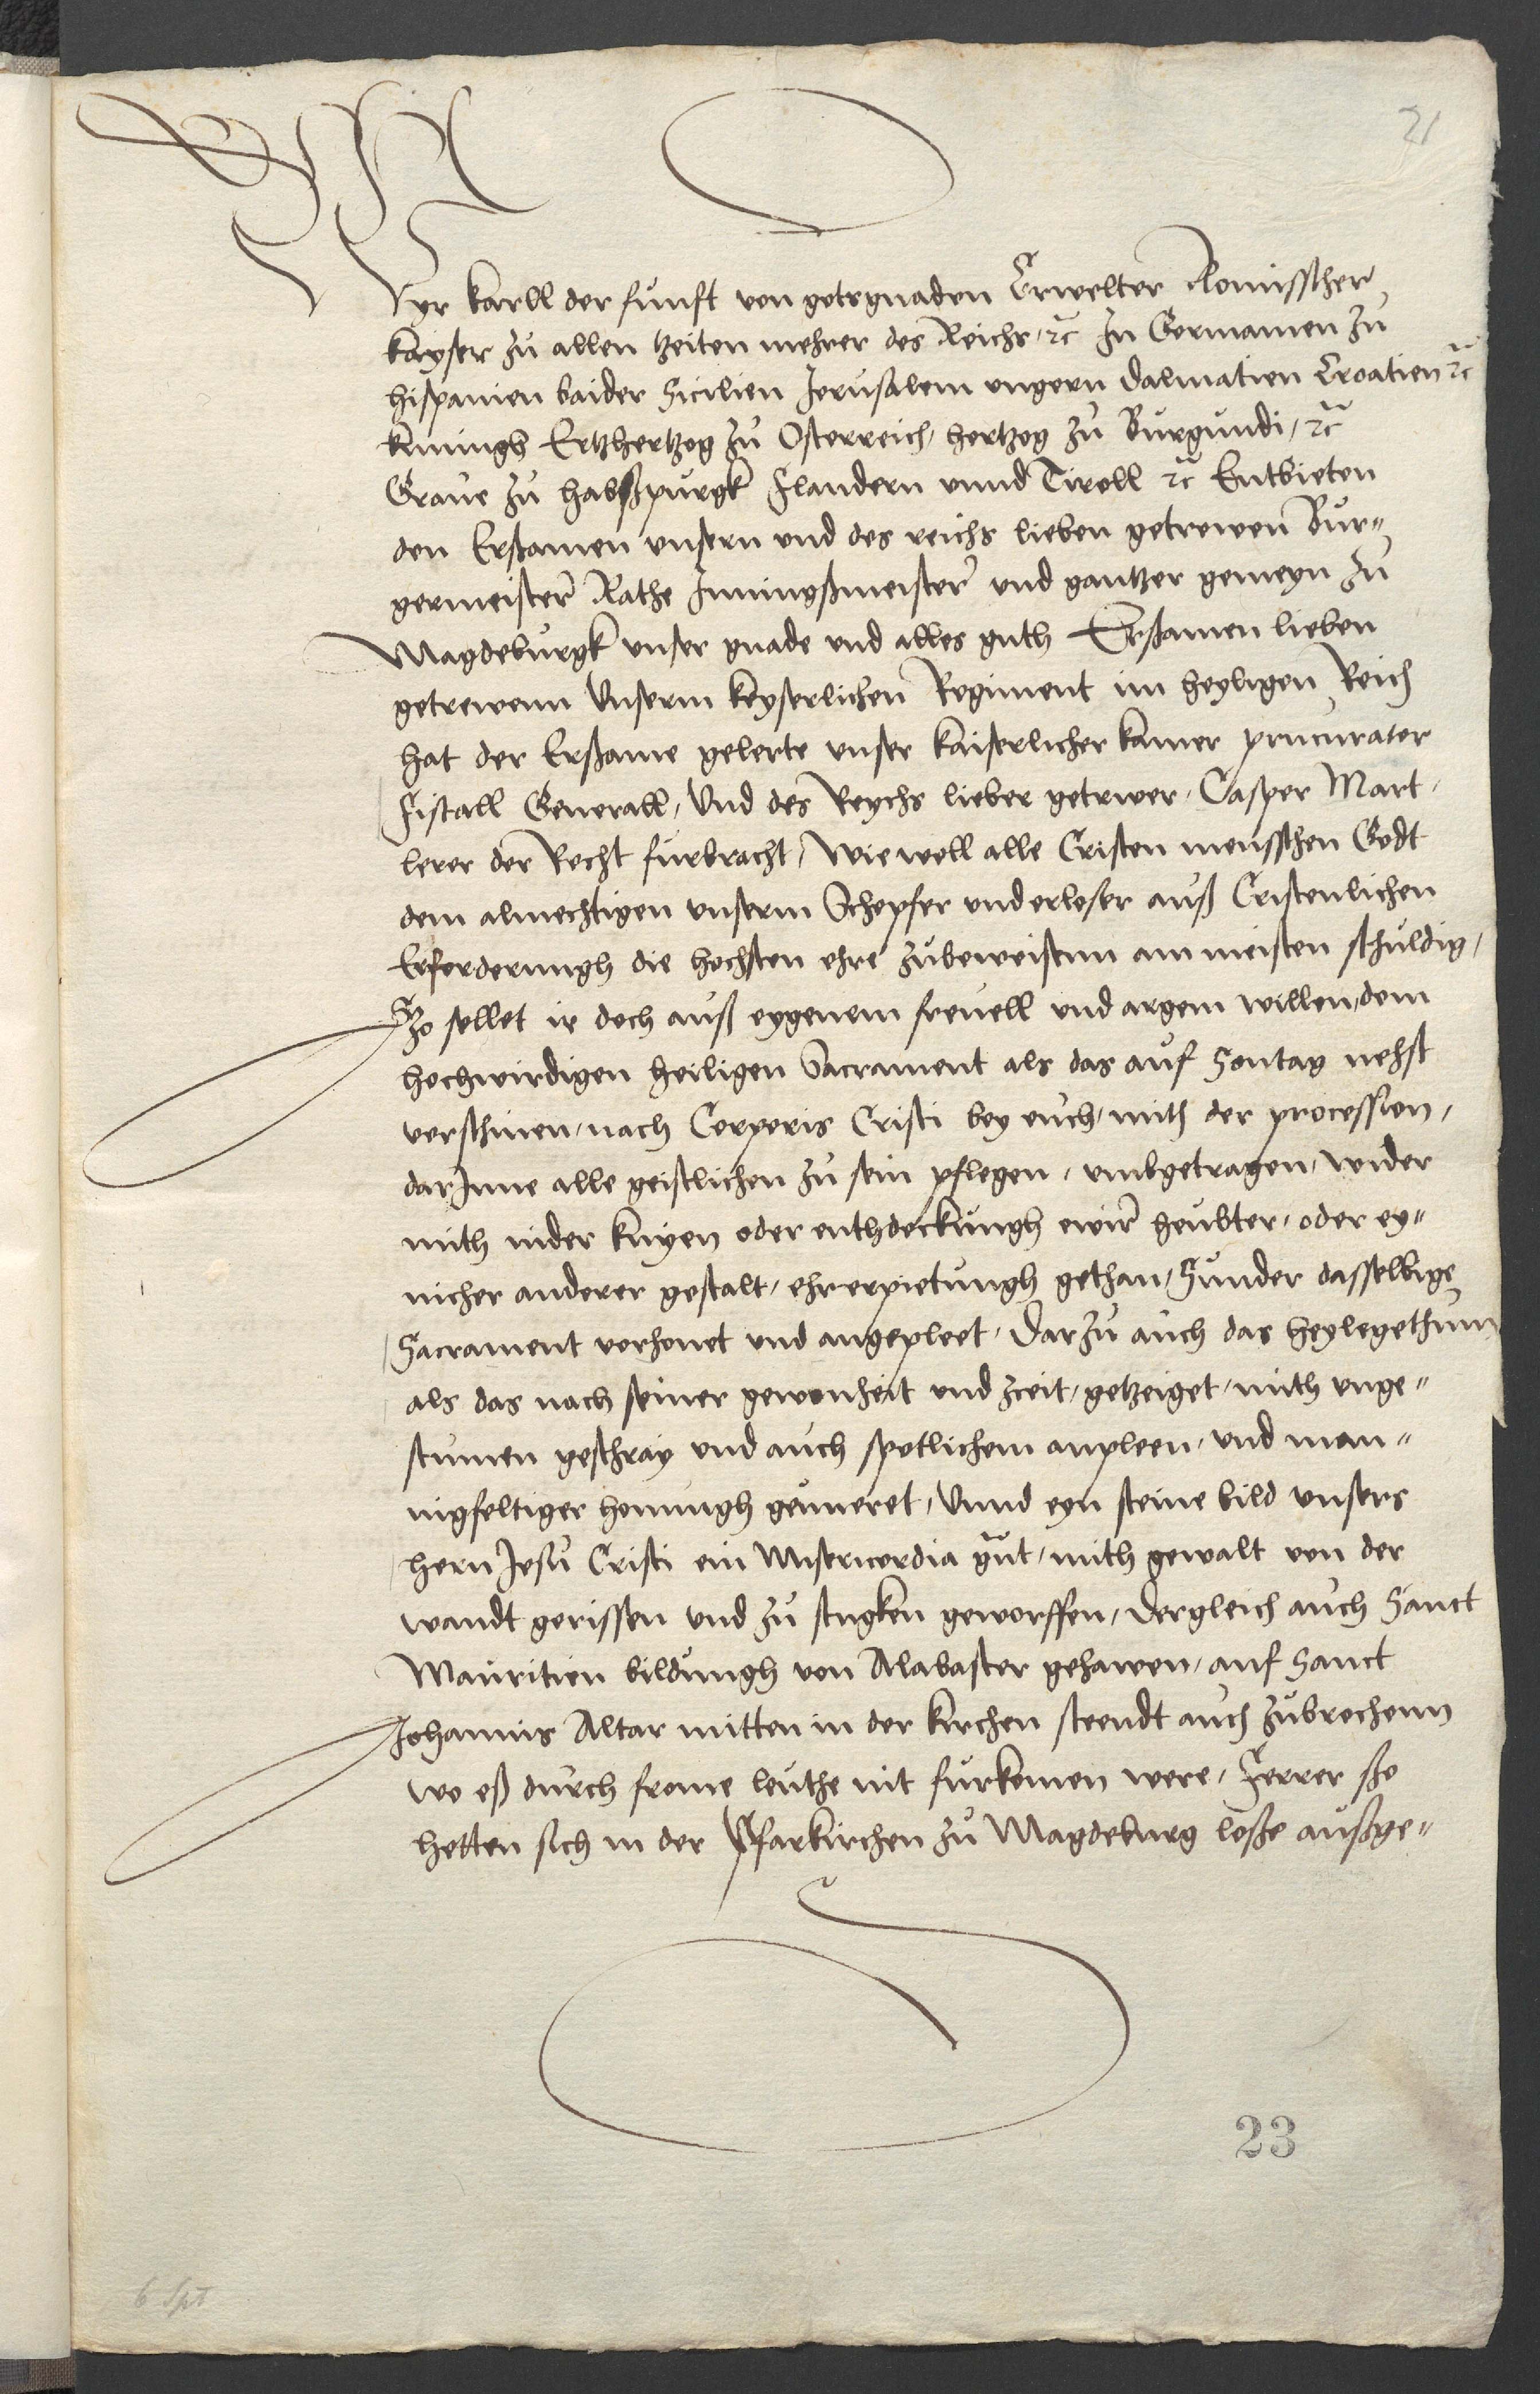 21
Wyr karll der funft von gotsgnaden Erwelter Romisscher
kayser zu allen tzeiten mehrer des Reichs, ꝛc In Germanien zu
hispanien baider Sicilien Jerusalem ungern Dalmatien Croatien ꝛc
kunigh Ertzhertzog zu Osterreich, hertzog zu Burgundi, ꝛc
Grave zu habsspurgk Flandern unnd Tiroll ꝛc Entbieten
den Erßamen unsern und des reichs lieben getrewen Bur"
germeister Rathe Inningßmeister und gantzer gemeyn zu
Magdeburgk unser gnade und alles guth Erßamen lieben
getrewenn Unserm keyserlichen Regiment im heyligen Reich
hat der Erßame gelerte unser kaiserlicher kamer prucurator
Fiscall Generall, Und des Reychs lieber getrwer, Casper Mart,
lerer der Recht furbracht, Wiewoll alle Cristen mensschen Godt
dem almechtigen unserm Schepfer und erloser auß Cristenlichen
Erforderungh die hochsten ehre zubeweissenn am meisten schuldig,
So sollet ir doch auß eygenem frevell und argem willen, dem
hochwirdigen heiligen Sacrament als das auf Sontag nehst
verschinen, nach Corporis Cristi bey euch, mith der procession,
darInne alle geistlichen zu sein pflegen, umbgetragen, wider
mith nider knyen oder enthdeckungh ewir heubter, oder ey"
nicher anderer gestalt, ehrerpietungh gethan, Sunder dasselbige
Sacrament verhonet und angepleet, Darzu auch das heylegethum
als das nach seiner gewonheit und zceit, getzeiget, mith unge"
stumen geschray und auch spotlichem anpleen, und man"
nigfeltiger honungh geuneret, Unnd eyn steine bild unsers
hern Jesu Cristi ein Misericordia gnt, mith gewalt von der
wandt gerissen und zu stugken geworffen, Dergleich auch Sanct
Mauritien bildungh von Alabaster gehawen, auf Sanct
Johannis Altar mitten in der kirchen steendt auch zubrochenn
wo eß durch frome leuthe nit furkomen were, Ferrer sso
hetten sich in der Pfarkirchen zu Magdeburg losse außge"
23
6 Spt